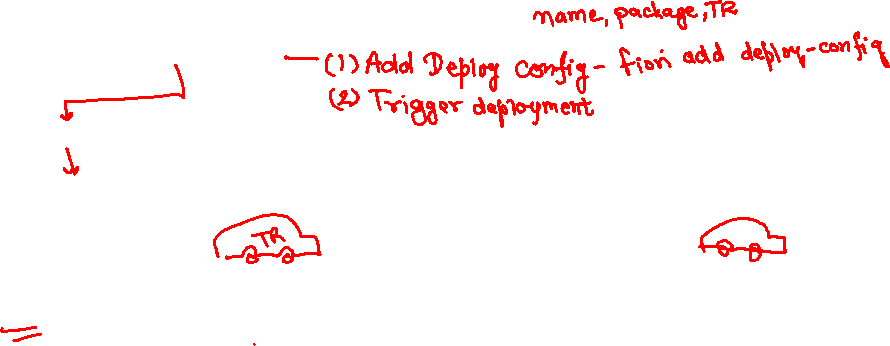 name, package, TR
(1) Add Deploy Config - fiori add deploy-config
(2) Trigger deployment
TR